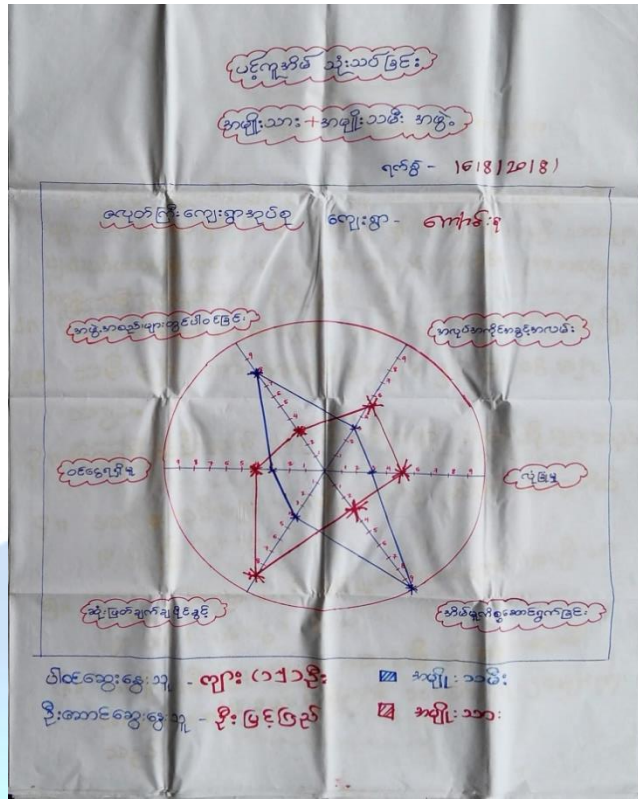 ပင့်ကူအိမ် သုံးသပ်ခြင်း
အမျိုးသား + အမျိုးသမီး အဖွဲ့
ရက်စွဲ - 16|8|2018|
ဇလုတ်ကြီးကျေးရွာအုပ်စု ကျေးရွာ -
အဖွဲ့အစည်းများတွင်ပါဝင်ခြင်း
အလုပ်အကိုင်အခွင့်အလမ်း
ဝင်ငွေရရှိမှု
လုံခြုံမှု
ဆုံးဖြတ်ချက်ချပိုင်ခွင့်
အိမ်မှုကိစ္စဆောင်ရွက်ခြင်း
ပါဝင်ဆွေးနွေးသူ - ကျား
အမျိုးသမီး
ဦးဆောင်ဆွေးနွေးသူ - ဦးမြင့်ကြည်
အမျိုးသား